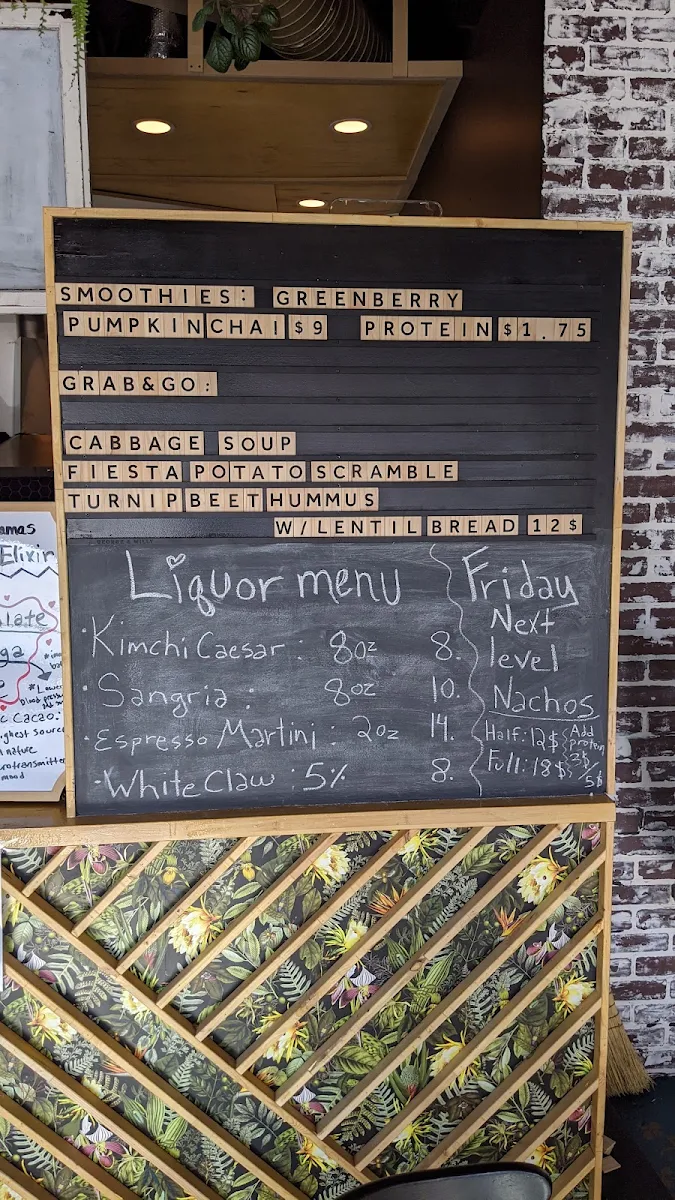 SMOOTHIES: GREENBERRY
PUMPKINCHAI $9 PROTEIN $1.75
GRAB&GO:
CABBAGE SOUP
FIESTA POTATO SCRAMBLE
TURNIP BEET HUMMUS
W/LENTIL BREAD 12$
Liquor menu
• Kimchi Caesar : 8oz 8.
• Sangria : 8oz 10.
• Espresso Martini : 2oz 14.
• White Claw : 5% 8.
Friday
Next
level
Nachos
Half: 12$
Full: 18$
Add
protein
3$/5$
amas
Elixir
late
ga
c Cacao:
ghest source
nature
rotransmitter
mood